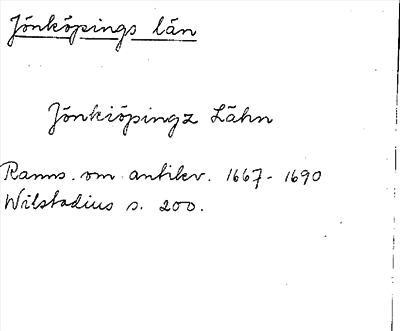 Jönköpings län
Jönkiöpingz Lähn
Ranns. om antikv. 1667-1690
Wilstadius s. 200.